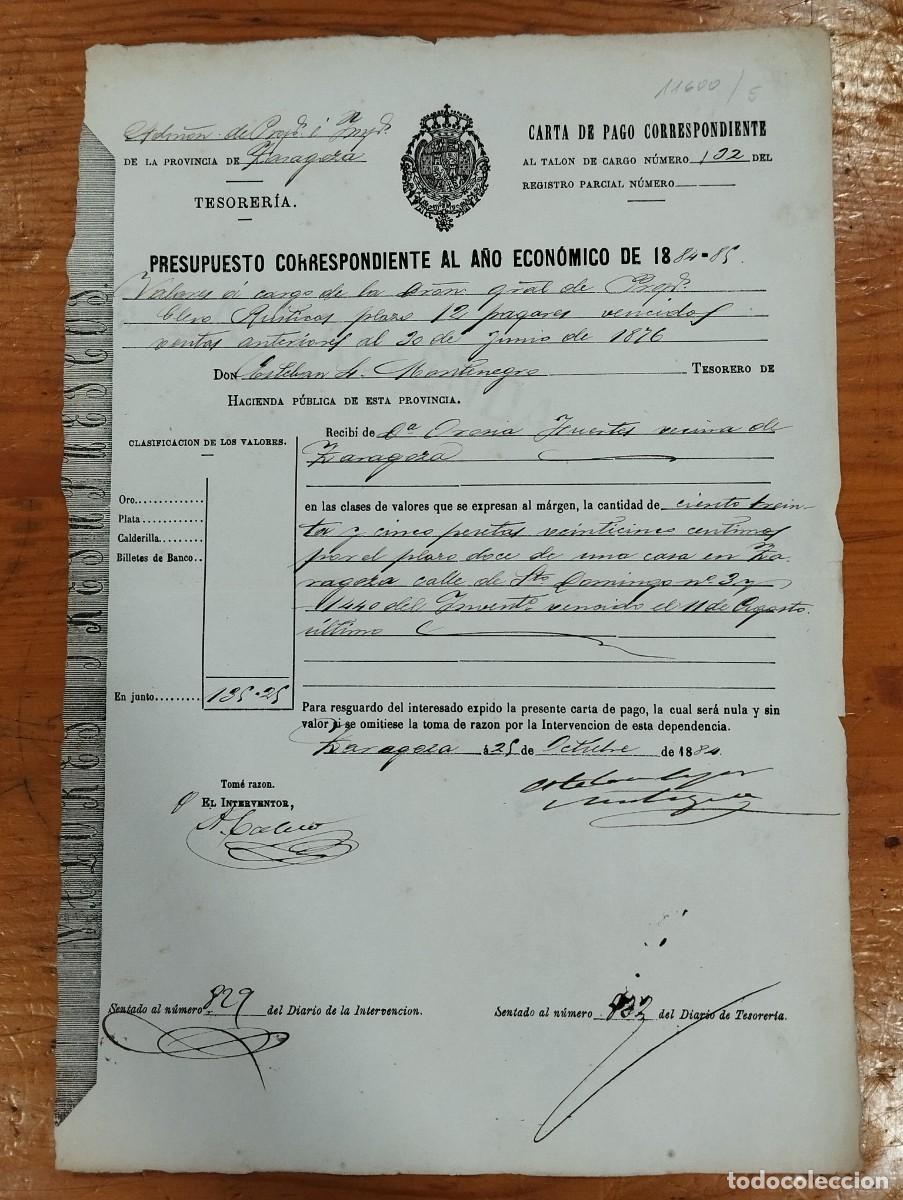 11600/5
Admón. de Prop.s é Imp.s
DE LA PROVINCIA DE Zaragoza
TESORERÍA.
CARTA DE PAGO CORRESPONDIENTE
AL TALON DE CARGO NÚMERO 132 DEL
REGISTRO PARCIAL NÚMERO
PRESUPUESTO CORRESPONDIENTE AL AÑO ECONÓMICO DE 1884-85.
Valores á cargo de la gral de Prop.s
Clero Rústicas plazo 12 pagares vencidos
ventas anteriores al 30 de Junio de 1876
DON Esteban L. Montenegro TESORERO DE
HACIENDA PÚBLICA DE ESTA PROVINCIA.
CLASIFICACION DE LOS VALORES.
Oro
Plata
Calderilla
Billetes de Banco
En junto 135-25
Recibí de D.a Huertes vecina de
Zaragoza
en las clases de valores que se expresan al márgen, la cantidad de ciento trein-
ta y cinco pesetas veinticinco centimos
por el plazo doce de una casa en Za-
ragoza calle de Sto Domingo nº 3 y
1440 del Invent.o vencido el 11 de Agosto
último
Para resguardo del interesado expido la presente carta de pago, la cual será nula y sin
valor si se omitiese la toma de razon por la Intervencion de esta dependencia.
Zaragoza á 25 de Octubre de 1884
Tomé razon.
EL INTERVENTOR,
Sentado al número 829 del Diario de la Intervencion.
Sentado al número 832 del Diario de Tesorería.
todocoleccion